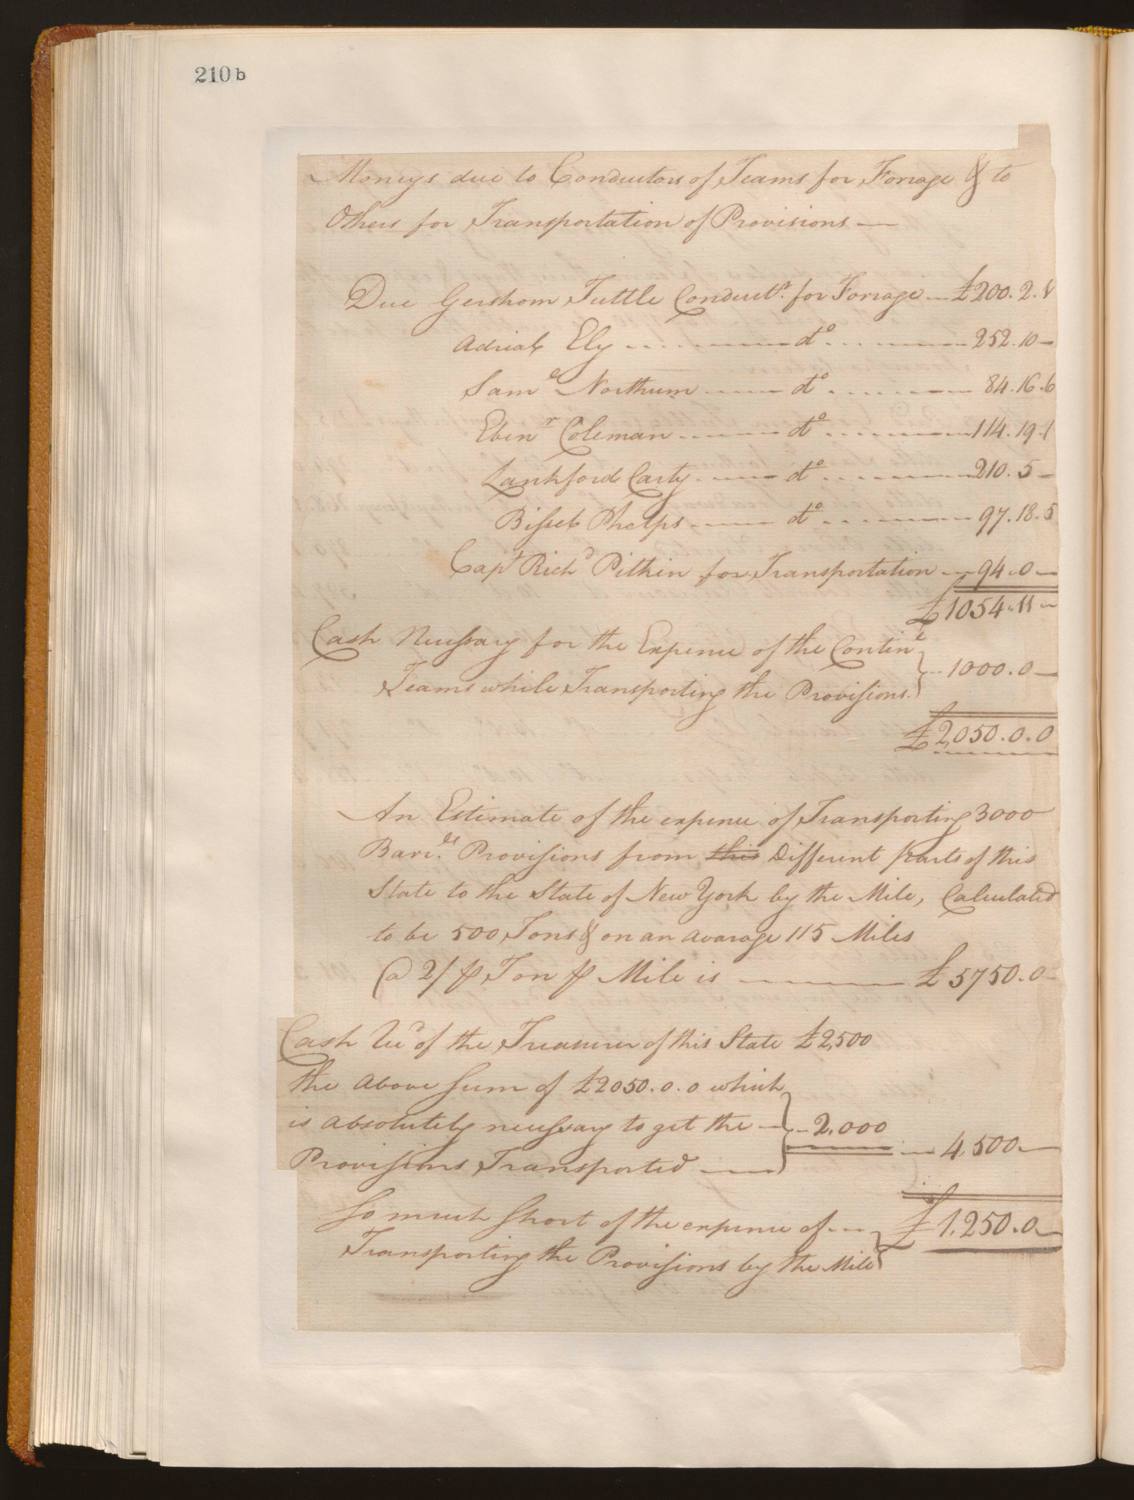 210b
Moneys due to Conductors of Teams for Forrage & to
Others for Transportation of Provisions —
Due Gershom Tuttle Conductr. for Forrage — £200. 2.
Adriah Ely — do — 252. 10 —
Saml Northum — do — 84. 16. 6
Ebenr Coleman — do — 114. 19. 1
Lankford Carty — do — 210. 5 —
Bissel Phelps — do — 97. 18. 5
Capt Richd Pitkin for Transportation — 94. 0 —
£1054. 11 —
Cash Necessary for the Expence of the Contint
Teams while Transporting the Provisions. } — 1000. 0 —
£2050. 0. 0
An Estimate of the expence of Transporting 3000
Barrls. Provisions from this Different parts of this
State to the State of New York by the Mile, Calculated
to be 500 Tons & on an avarage 115 Miles
@ 2/ ⅌ Ton ⅌ Mile is — £5750. 0 -
Cash Recd of the Treasurer of this State £2,500
the Above Sum of £2050. 0. 0 which
is absolutely necessary to get the — } — 2,000
Provisions Transported — — 4,500 —
So much Short of the expence of — } £1,250. 0 —
Transporting the Provisions by the Mile